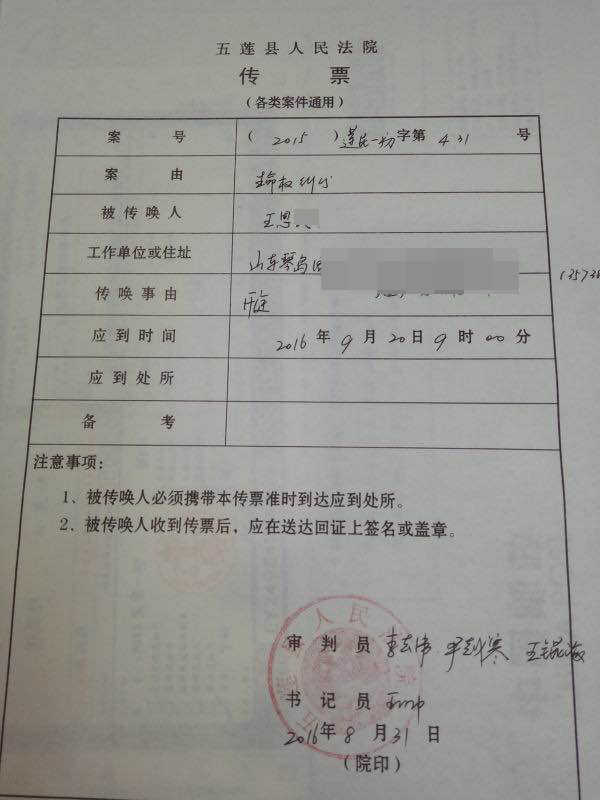 五莲县人民法院
传票
(各类案件通用)
案号 ( 2015 )莲民一初字第 431 号
案由 生命权纠纷
被传唤人 王恩
工作单位或住址 山东琴岛
传唤事由 开庭
应到时间 2016 年 9 月 20 日 9 时 00 分
应到处所
备考
注意事项:
1、被传唤人必须携带本传票准时到达应到处所。
2、被传唤人收到传票后,应在送达回证上签名或盖章。
审判员
书记员
2016年 8 月 31 日
(院印)